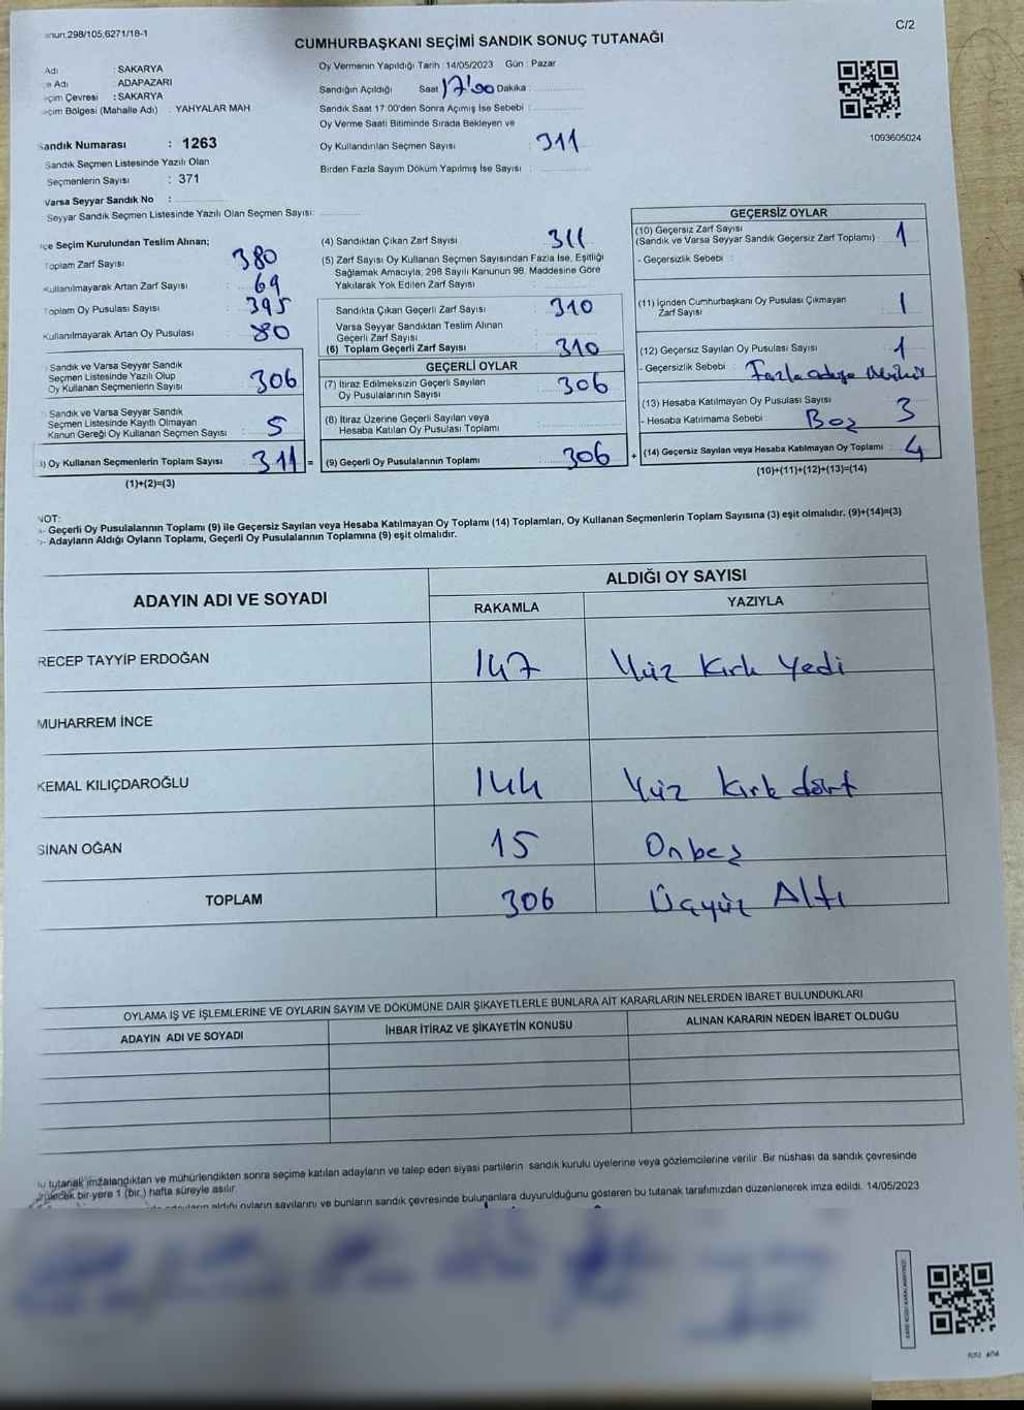 298/105,6271/18-1
C/2
CUMHURBAŞKANI SEÇİMİ SANDIK SONUÇ TUTANAĞI
Adı : SAKARYA
Adı : ADAPAZARI
Çevresi : SAKARYA
Bölgesi (Mahalle Adı) : YAHYALAR MAH
Sandık Numarası : 1263
Sandık Seçmen Listesinde Yazılı Olan
Seçmenlerin Sayısı : 371
Varsa Seyyar Sandık No :
Seyyar Sandık Seçmen Listesinde Yazılı Olan Seçmen Sayısı:
Oy Vermenin Yapıldığı Tarih : 14/05/2023 Gün : Pazar
Sandığın Açıldığı Saat 17:00 Dakika
Sandık Saat 17.00'den Sonra Açımış İse Sebebi :
Oy Verme Saati Bitiminde Sırada Bekleyen ve
Oy Kullandırılan Seçmen Sayısı : 311
Birden Fazla Sayım Döküm Yapılmış İse Sayısı :
1093605024
Seçim Kurulundan Teslim Alınan;
Toplam Zarf Sayısı : 380
Kullanılmayarak Artan Zarf Sayısı : 69
Toplam Oy Pusulası Sayısı : 395
Kullanılmayarak Artan Oy Pusulası : 80
Sandık ve Varsa Seyyar Sandık
Seçmen Listesinde Yazılı Olup
Oy Kullanan Seçmenlerin Sayısı : 306
Sandık ve Varsa Seyyar Sandık
Seçmen Listesinde Kayıtlı Olmayan
Kanun Gereği Oy Kullanan Seçmen Sayısı : 5
Oy Kullanan Seçmenlerin Toplam Sayısı 311 =
(1)+(2)=(3)
(4) Sandıktan Çıkan Zarf Sayısı : 311
(5) Zarf Sayısı Oy Kullanan Seçmen Sayısından Fazla İse, Eşitliği
Sağlamak Amacıyla, 298 Sayılı Kanunun 98. Maddesine Göre
Yakılarak Yok Edilen Zarf Sayısı :
Sandıkta Çıkan Geçerli Zarf Sayısı : 310
Varsa Seyyar Sandıktan Teslim Alınan
Geçerli Zarf Sayısı :
(6) Toplam Geçerli Zarf Sayısı : 310
GEÇERLİ OYLAR
(7) İtiraz Edilmeksizin Geçerli Sayılan
Oy Pusulalarının Sayısı : 306
(8) İtiraz Üzerine Geçerli Sayılan veya
Hesaba Katılan Oy Pusulası Toplamı :
(9) Geçerli Oy Pusulalarının Toplamı : 306 +
GEÇERSİZ OYLAR
(10) Geçersiz Zarf Sayısı
(Sandık ve Varsa Seyyar Sandık Geçersiz Zarf Toplamı) : 1
- Geçersizlik Sebebi :
(11) İçinden Cumhurbaşkanı Oy Pusulası Çıkmayan
Zarf Sayısı : 1
(12) Geçersiz Sayılan Oy Pusulası Sayısı : 1
- Geçersizlik Sebebi : Fazla
(13) Hesaba Katılmayan Oy Pusulası Sayısı : 3
- Hesaba Katılmama Sebebi : Boş
(14) Geçersiz Sayılan veya Hesaba Katılmayan Oy Toplamı : 4
(10)+(11)+(12)+(13)=(14)
NOT:
- Geçerli Oy Pusulalarının Toplamı (9) ile Geçersiz Sayılan veya Hesaba Katılmayan Oy Toplamı (14) Toplamları, Oy Kullanan Seçmenlerin Toplam Sayısına (3) eşit olmalıdır. (9)+(14)=(3)
- Adayların Aldığı Oyların Toplamı, Geçerli Oy Pusulalarının Toplamına (9) eşit olmalıdır.
ADAYIN ADI VE SOYADI
ALDIĞI OY SAYISI
RAKAMLA YAZIYLA
RECEP TAYYİP ERDOĞAN 147 Yüz Kırk Yedi
MUHARREM İNCE
KEMAL KILIÇDAROĞLU 144 Yüz Kırk dört
SİNAN OĞAN 15 Onbeş
TOPLAM 306 Üçyüz Altı
OYLAMA İŞ VE İŞLEMLERİNE VE OYLARIN SAYIM VE DÖKÜMÜNE DAİR ŞİKAYETLERLE BUNLARA AİT KARARLARIN NELERDEN İBARET BULUNDUKLARI
ADAYIN ADI VE SOYADI İHBAR İTİRAZ VE ŞİKAYETİN KONUSU ALINAN KARARIN NEDEN İBARET OLDUĞU
tutanak imzalandıktan ve mühürlendikten sonra seçime katılan adayların ve talep eden siyasi partilerin sandık kurulu üyelerine veya gözlemcilerine verilir. Bir nüshası da sandık çevresinde
bir yere 1 (bir) hafta süreyle asılır.
aldığı oyların sayılarını ve bunların sandık çevresinde bulunanlara duyurulduğunu gösteren bu tutanak tarafımızdan düzenlenerek imza edildi. 14/05/2023